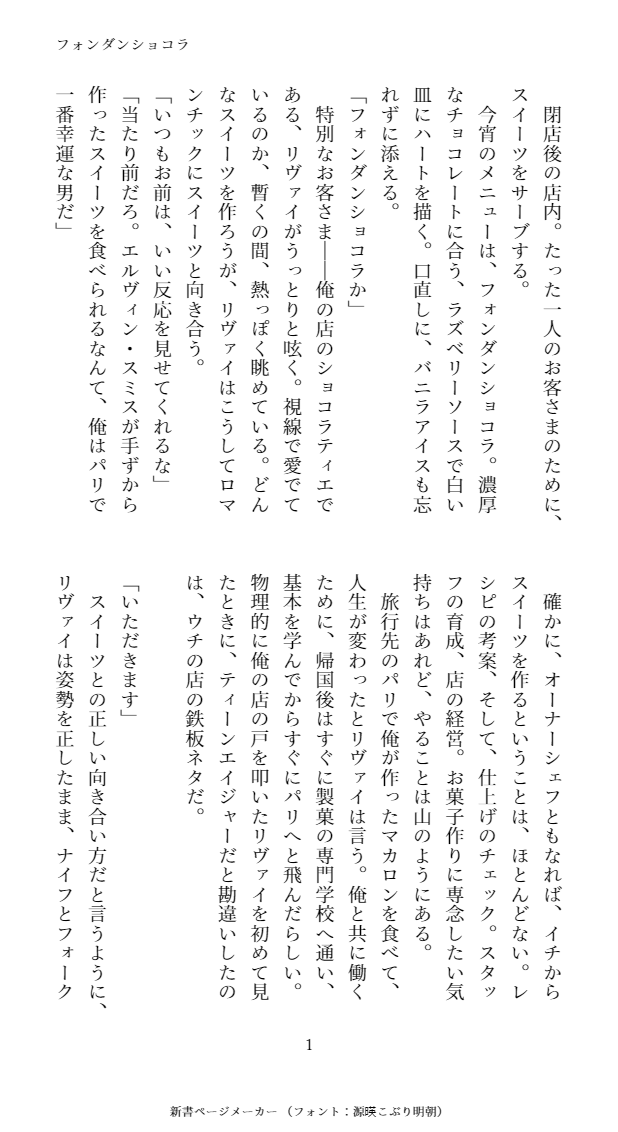 フォンダンショコラ
　閉店後の店内。たった一人のお客さまのために、
スイーツをサーブする。
　今宵のメニューは、フォンダンショコラ。濃厚
なチョコレートに合う、ラズベリーソースで白い
皿にハートを描く。口直しに、バニラアイスも忘
れずに添える。
「フォンダンショコラか」
　特別なお客さま――俺の店のショコラティエで
ある、リヴァイがうっとりと呟く。視線で愛でて
いるのか、暫くの間、熱っぽく眺めている。どん
なスイーツを作ろうが、リヴァイはこうしてロマ
ンチックにスイーツと向き合う。
「いつもお前は、いい反応を見せてくれるな」
「当たり前だろ。エルヴィン・スミスが手ずから
作ったスイーツを食べられるなんて、俺はパリで
一番幸運な男だ」
　確かに、オーナーシェフともなれば、イチから
スイーツを作るということは、ほとんどない。レ
シピの考案、そして、仕上げのチェック。スタッ
フの育成、店の経営。お菓子作りに専念したい気
持ちはあれど、やることは山のようにある。
　旅行先のパリで俺が作ったマカロンを食べて、
人生が変わったとリヴァイは言う。俺と共に働く
ために、帰国後はすぐに製菓の専門学校へ通い、
基本を学んでからすぐにパリへと飛んだらしい。
物理的に俺の店の戸を叩いたリヴァイを初めて見
たときに、ティーンエイジャーだと勘違いしたの
は、ウチの店の鉄板ネタだ。
「いただきます」
　スイーツとの正しい向き合い方だと言うように、
リヴァイは姿勢を正したまま、ナイフとフォーク
1
新書ページメーカー（フォント：源暎こぶり明朝）